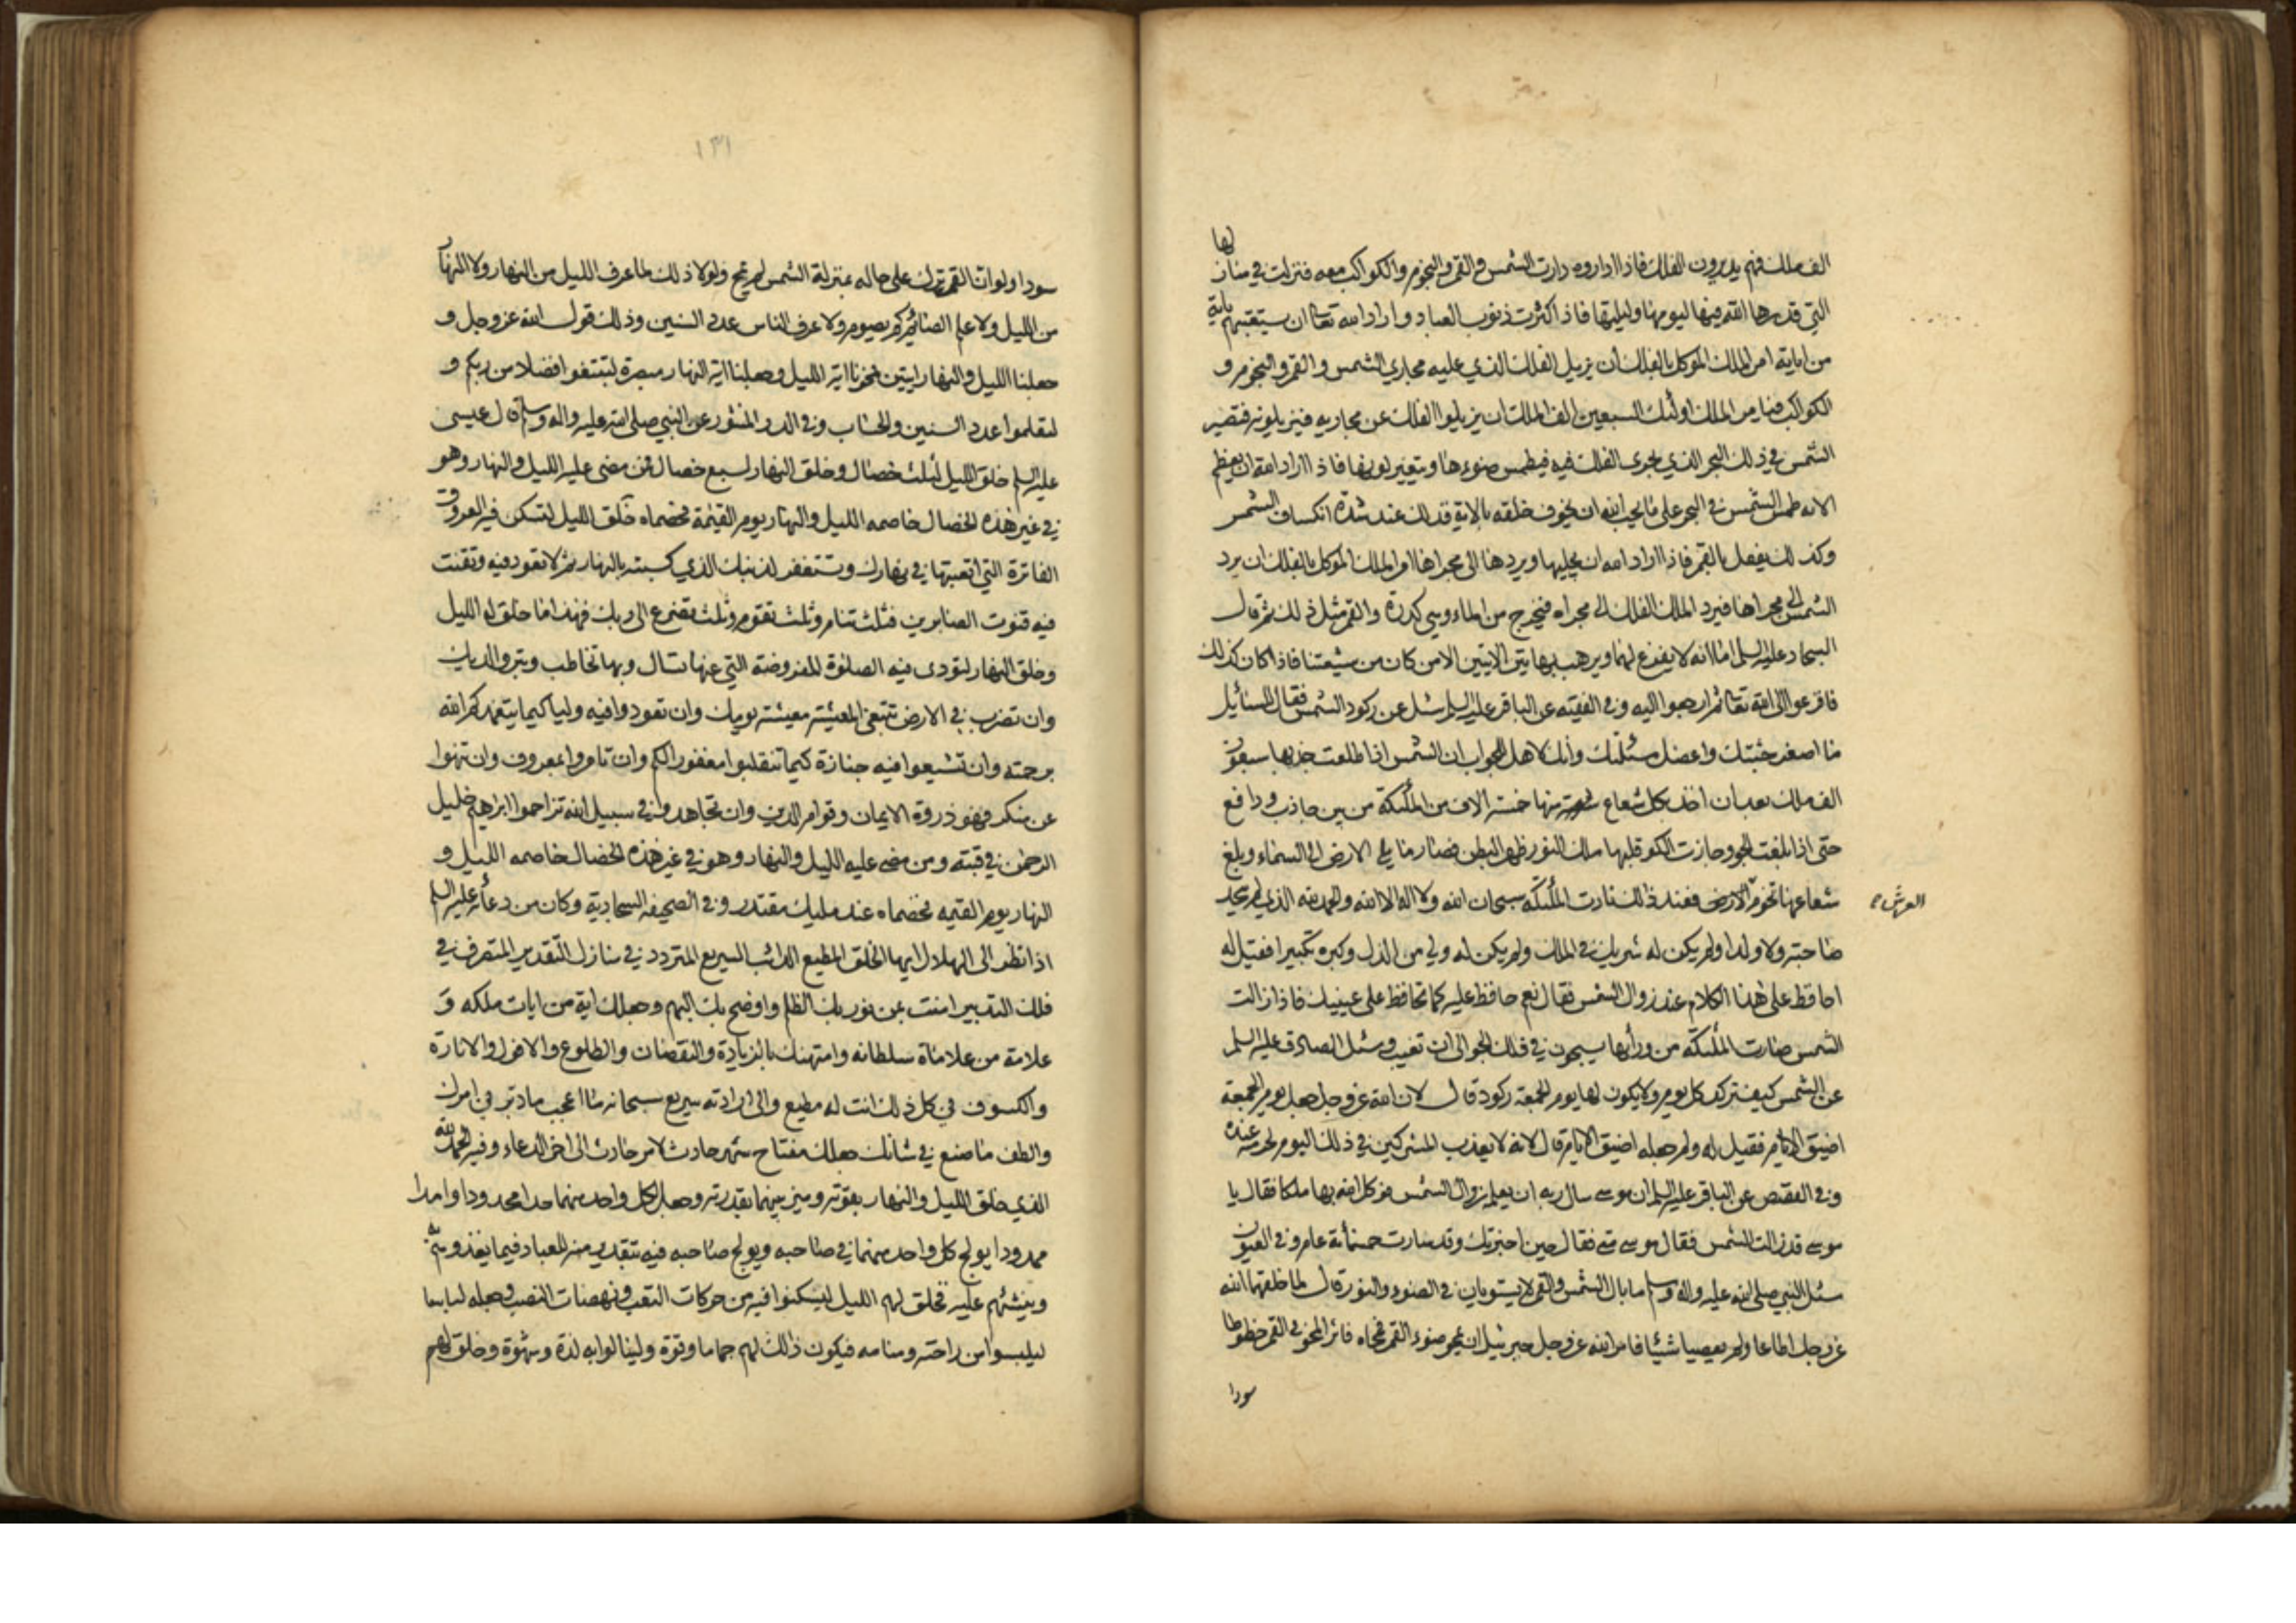 الف ملك فهم يديرون الفلك فاذا اداروه دارت الشمس و القمر و النجوم والكواكب معه فنزلت في منازلها
التي قدرها الله فيها ليومها وليلتها فاذا كثرت ذنوب العباد و اراد الله تعالى ان يستعتبهم باية
من اياته امر الملك الموكل بالفلك ان يزيل الفلك الذي عليه مجاري الشمس و القمر و النجوم و
الكواكب فيامر الملك اولئك السبعين الف الملك ان يزيلوا الفلك عن مجاريه فيزيلونه فتصير
الشمس في ذلك البحر الذي يجري الفلك فيه فيطمس ضوءها ويتغير لونها فاذا اراد الله ان يعظم
الاية طمس الشمس في البحر على ما يحب الله ان يخوف خلقه بالاية فذلك عند شدة انكساف الشمس
وكذلك يفعل بالقمر فاذا اراد الله ان يجليها ويردها الى مجراها امر الملك الموكل بالفلك ان يرد
الشمس الى مجراها فيرد الملك الفلك الى مجراه فيخرج من الماء وهي كدرة والقمر مثل ذلك ثم قال
السجاد عليه السلم اما انه لا يفزع لهما ويرهب بهاتين الايتين الا من كان من شيعتنا فاذا كان كذلك
فافزعوا الى الله تعالى ثم ارجعوا اليه وفي الفقيه عن الباقر عليه السلم سئل عن ركود الشمس فقال للسائل
ما اصغر جثتك واعضل مسئلتك وانك لاهل للجواب ان الشمس اذا طلعت جذبها سبعون
الف ملك بعد ان اخذ بكل شعاع منها خمسة الاف من الملئكة من بين جاذب و دافع
حتى اذا بلغت الجو وجازت الكو قلبها ملك النور ظهر البطن فصار ما يلي الارض الى السماء وبلغ
شعاعها تخوم العرش الارض فعند ذلك نادت الملئكة سبحان الله ولا اله الا الله والحمد لله الذي لم يتخذ
صاحبة ولا ولدا ولم يكن له شريك في الملك ولم يكن له ولي من الذل وكبره تكبيرا فقيل له
احافظ على هذا الكلام عند زوال الشمس فقال نعم حافظ عليه كما تحافظ على عينيك فاذا زالت
الشمس صارت الملئكة من ورائها يسبحون في فلك الجو الى ان تغيب وسئل الصادق عليه السلم
عن الشمس كيف تركد كل يوم ولا يكون لها يوم الجمعة ركود قال لان الله عز وجل جعل يوم الجمعة
اضيق الايام فقيل له ولم جعله اضيق الايام قال لانه لا يعذب المشركين في ذلك اليوم لحرمته عنده
وفي القصص عن الباقر عليه السلم ان موسى سال ربه ان يعلمه زوال الشمس فوكل الله بها ملكا فقال يا
موسى قد زالت الشمس فقال موسى متى فقال حين اخبرتك وقد سارت خمسمائة عام وفي العيون
سئل النبي صلى الله عليه واله وسلم ما بال الشمس والقمر لا يستويان في الضوء والنور قال لما خلقهما الله
عز وجل اطاعا ولم يعصيا شيئا فامر الله عز وجل جبرئيل ان يمحو ضوء القمر فمحاه فاثر المحو في القمر خطوطا
سودا
العرش
١٣١
سودا ولو ان القمر ترك على حاله بمنزلة الشمس لم يمح ولولا ذلك لما عرف الليل من النهار ولا النهار
من الليل ولا علم الصائم كم يصوم ولا عرف الناس عدد السنين وذلك قول الله عز وجل و
جعلنا الليل والنهار ايتين فمحونا اية الليل وجعلنا اية النهار مبصرة لتبتغوا فضلا من ربكم و
لتعلموا عدد السنين والحساب وفي الدر المنثور عن النبي صلى الله عليه واله وسلم قال عيسى
عليه السلم خلق الليل لثلث خصال وخلق النهار لسبع خصال فمن مضى عليه الليل والنهار وهو
في غير هذه الخصال خاصمه الليل والنهار يوم القيمة فخصماه خلق الليل لتسكن فيه العروق
الفاترة التي اتعبتها في نهارك وتستغفر لذنبك الذي كسبته بالنهار ثم لا تعود فيه وتقنت
فيه قنوت الصابرين فثلث تنام وثلث تقوم وثلث تضرع الى ربك فهذا ما خلق له الليل
وخلق النهار لتؤدى فيه الصلوة المفروضة التي عنها تسال وبها تخاطب وتبر والديك
وان تضرب في الارض تبتغي المعيشة معيشة يومك وان تعودوا فيه وليا كيما يتغمدكم الله
برحمته وان تشيعوا فيه جنازة كيما تنقلبوا مغفورا لكم وان تامروا بمعروف وان تنهوا
عن منكر فهو ذروة الايمان وقوام الدين وان تجاهدوا في سبيل الله تزاحموا ابراهيم خليل
الرحمن في قبته ومن مضى عليه الليل والنهار وهو في غير هذه الخصال خاصمه الليل و
النهار يوم القيمة فخصماه عند مليك مقتدر وفي الصحيفة السجادية وكان من دعائه عليه السلم
اذا نظر الى الهلال ايها الخلق المطيع الدائب السريع المتردد في منازل التقدير المتصرف في
فلك التدبير امنت بمن نور بك الظلم واوضح بك البهم وجعلك اية من ايات ملكه و
علامة من علامات سلطانه وامتهنك بالزيادة والنقصان والطلوع والافول والانارة
والكسوف في كل ذلك انت له مطيع والى ارادته سريع سبحانه ما اعجب ما دبر في امرك
والطف ما صنع في شانك جعلك مفتاح شهر حادث لامر حادث الى اخر الدعاء وفيه الحمد لله
الذي خلق الليل والنهار بقوته وميز بينهما بقدرته وجعل لكل واحد منهما حدا محدودا وامدا
ممدودا يولج كل واحد منهما في صاحبه ويولج صاحبه فيه بتقدير منه للعباد فيما يغذوهم به
وينشئهم عليه فخلق لهم الليل ليسكنوا فيه من حركات التعب ونهضات النصب وجعله لباسا
ليلبسوا من راحته ومنامه فيكون ذلك لهم جماما وقوة ولينالوا به لذة وشهوة وخلق لهم